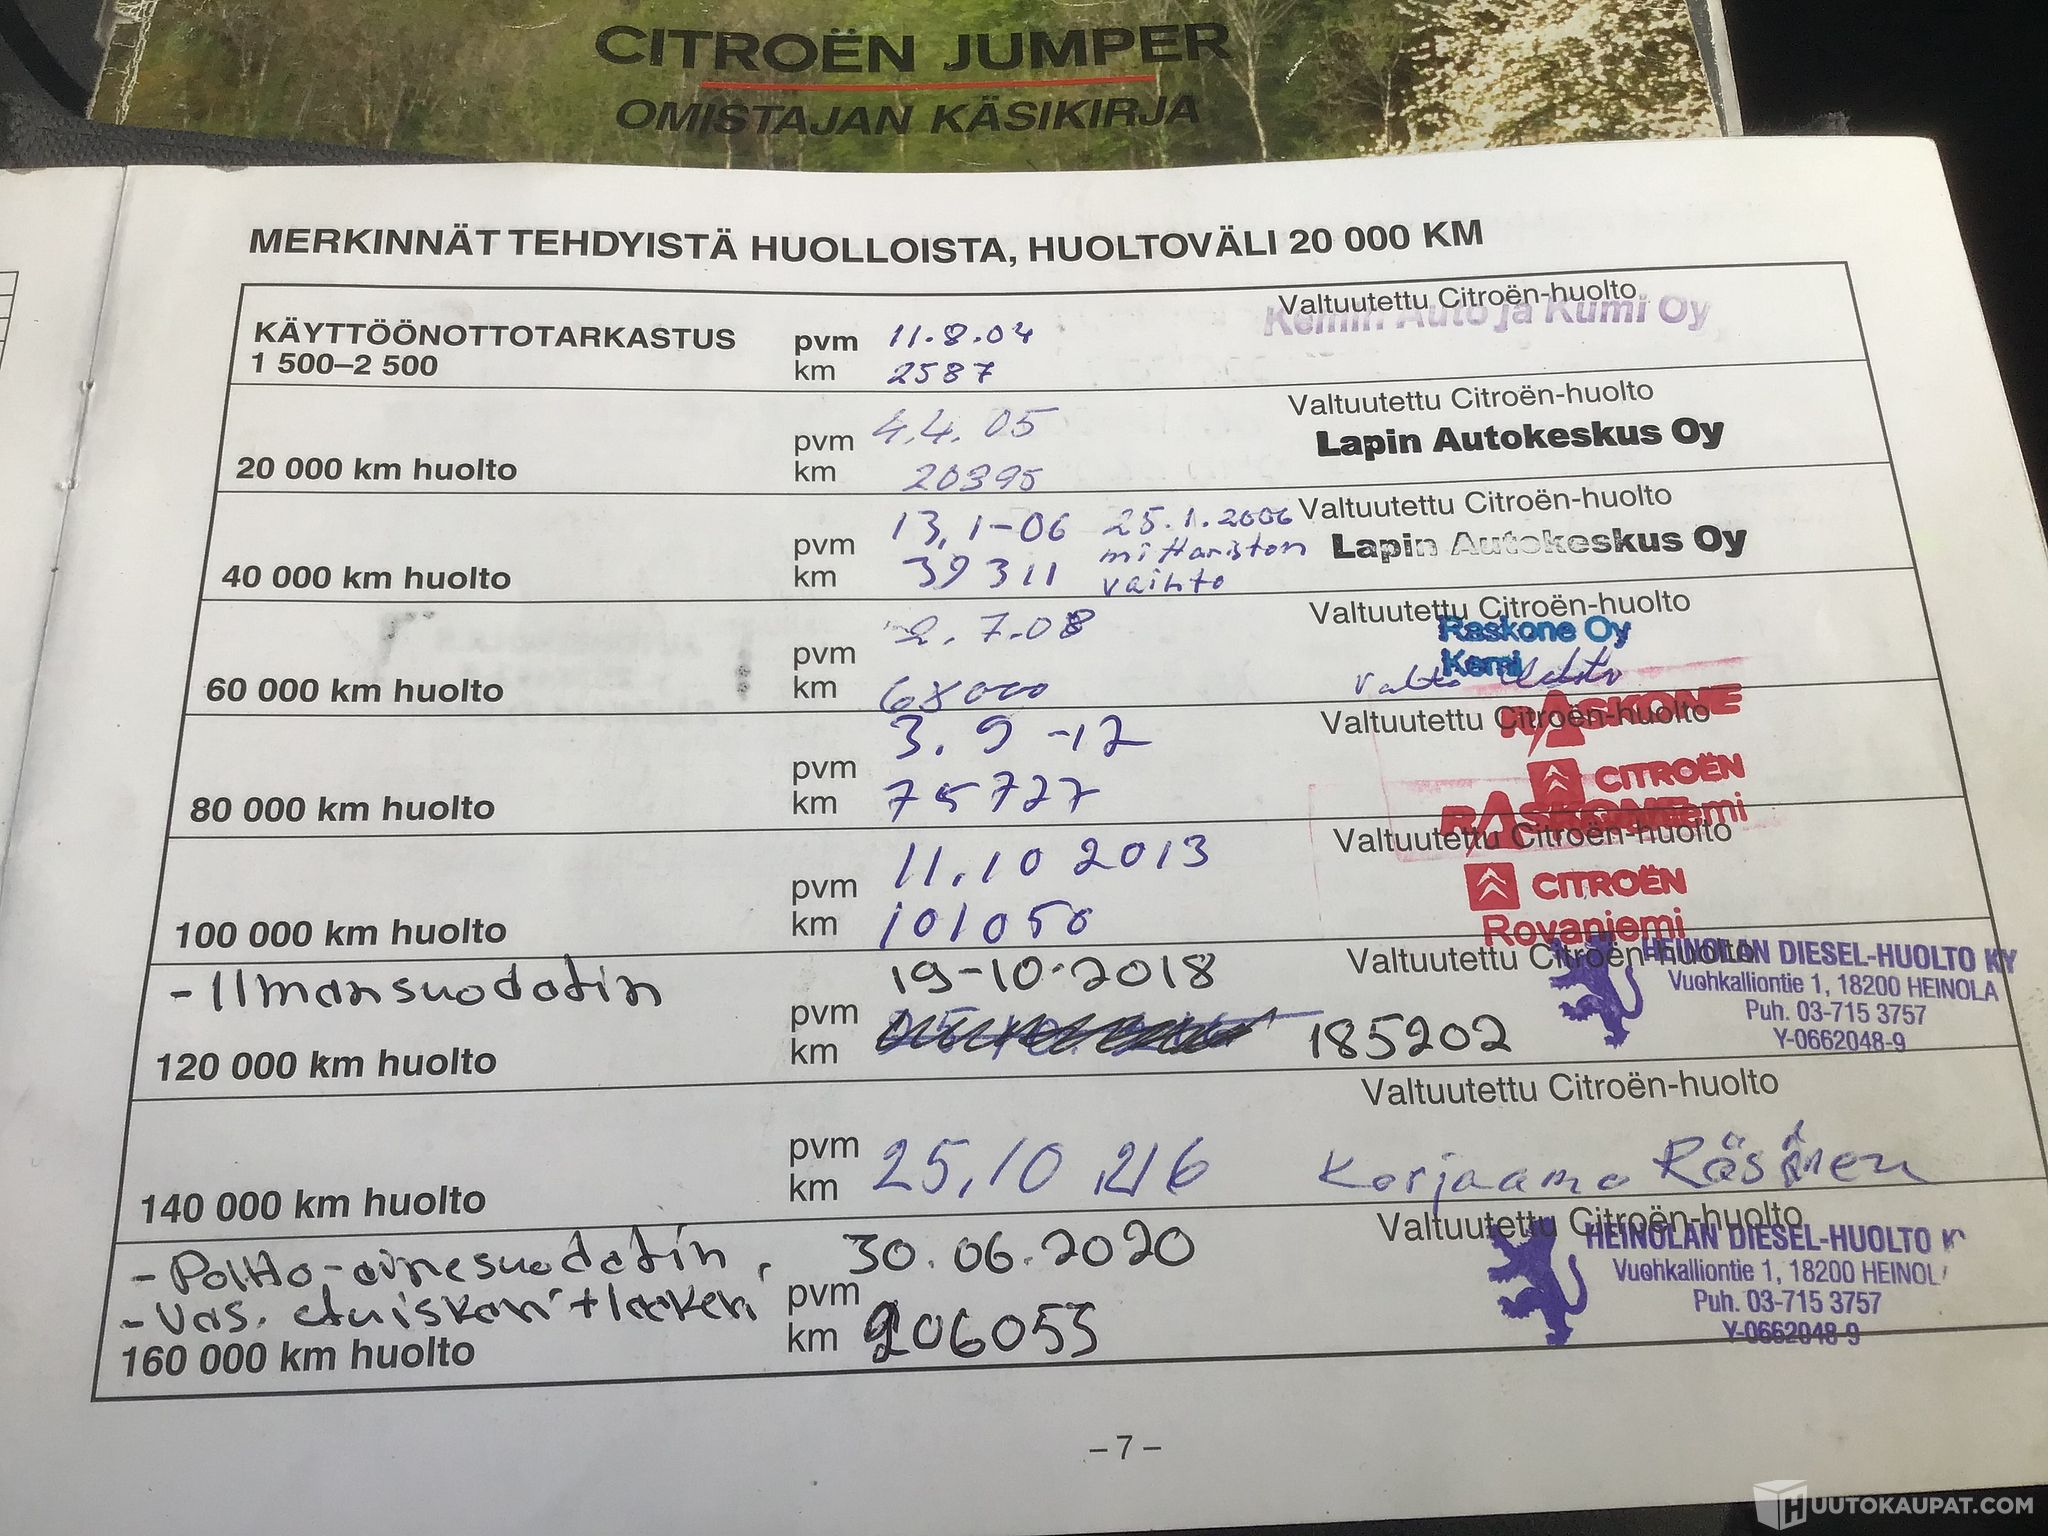 CITROËN JUMPER
OMISTAJAN KÄSIKIRJA
MERKINNÄT TEHDYISTÄ HUOLLOISTA, HUOLTOVÄLI 20 000 KM
KÄYTTÖÖNOTTOTARKASTUS
1 500–2 500
pvm 11.8.04
km 2587
Valtuutettu Citroën-huolto
Kemin Auto ja Kumi Oy
20 000 km huolto
pvm 4.4.05
km 20395
Valtuutettu Citroën-huolto
Lapin Autokeskus Oy
40 000 km huolto
pvm 13,1-06
km 39311
25.1.2006
mittariston
vaihto
Valtuutettu Citroën-huolto
Lapin Autokeskus Oy
60 000 km huolto
pvm 2.7.08
km 68000
Valtuutettu Citroën-huolto
Raskone Oy
Kemi
80 000 km huolto
pvm 3.9-12
km 75727
Valtuutettu Citroën-huolto
RASKONE
CITROËN
100 000 km huolto
pvm 11.10 2013
km 101050
Valtuutettu Citroën-huolto
RASKONE
CITROËN
Rovaniemi
-Ilmansuodatin
120 000 km huolto
pvm 19-10-2018
km 185202
Valtuutettu Citroën-huolto
HEINOLAN DIESEL-HUOLTO KY
Vuohkalliontie 1, 18200 HEINOLA
Puh. 03-715 3757
Y-0662048-9
140 000 km huolto
pvm
km
25,10 216
Valtuutettu Citroën-huolto
Korjaamo Räsänen
-Poltto-ainesuodatin,
-Vas. etuiskari + laakeri
160 000 km huolto
pvm 30.06.2020
km 206053
Valtuutettu Citroën-huolto
HEINOLAN DIESEL-HUOLTO K
Vuohkalliontie 1, 18200 HEINOL
Puh. 03-715 3757
Y-0662048-9
– 7 –
HUUTOKAUPAT.COM